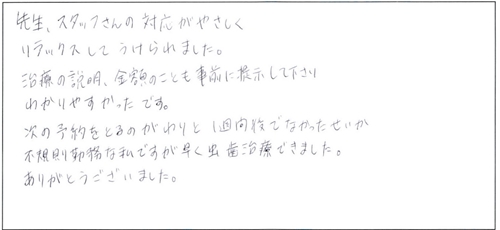 先生、スタッフさんの対応がやさしく
リラックスしてうけられました。
治療の説明、金額のことも事前に提示して下さり
わかりやすかったです。
次の予約をとるのがわりと1週間後でなかったせいか
不規則勤務な私ですが早く虫歯治療できました。
ありがとうございました。